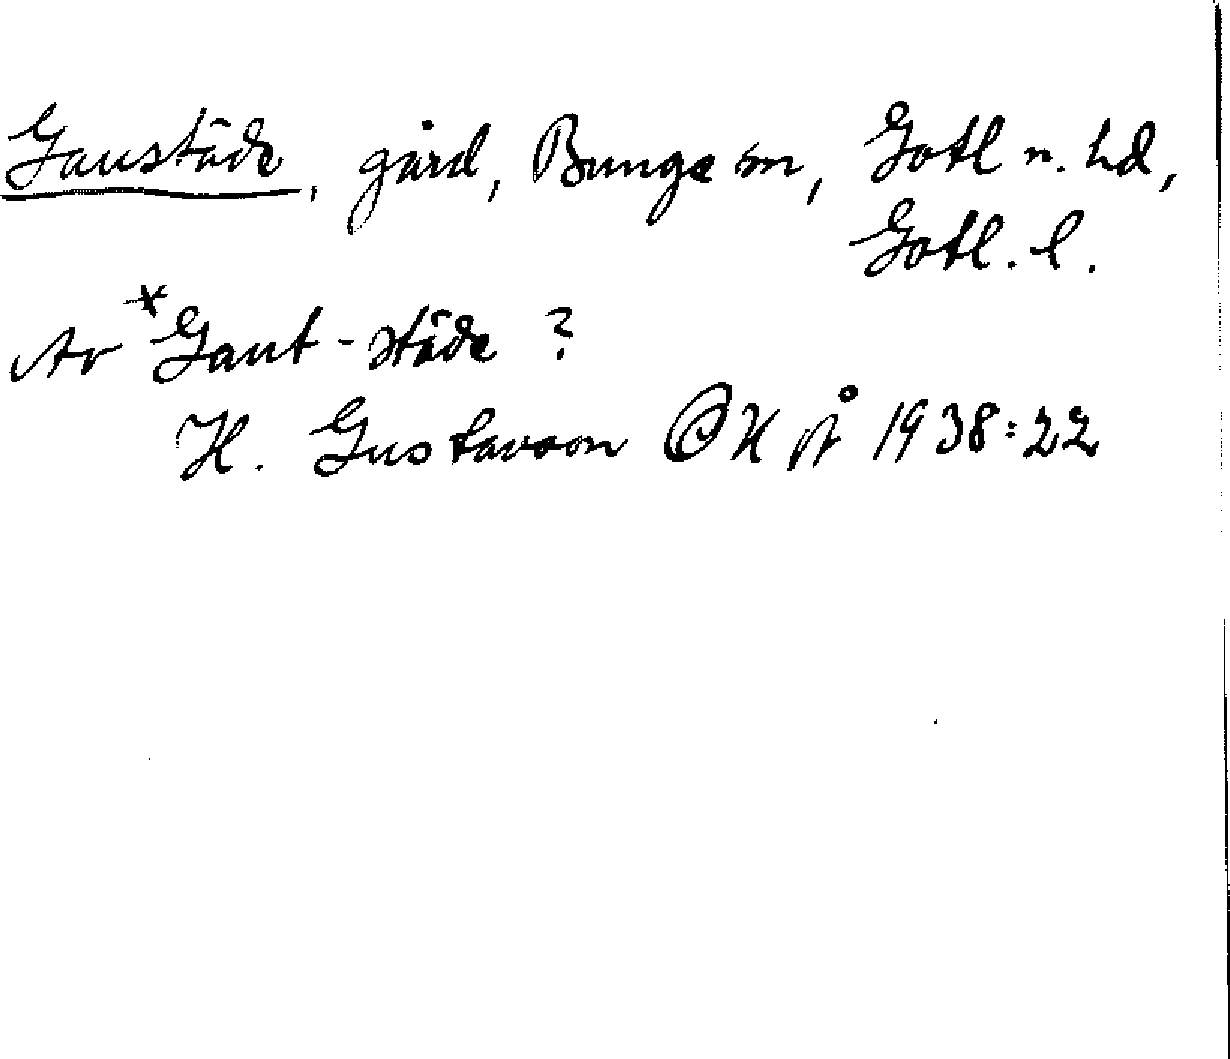 Gaustäde, gård, Bunge sn, Gotl n. hd,
Gotl. l.
Av *Gaut-städe ?
H. Gustavson i OH på 1938:22